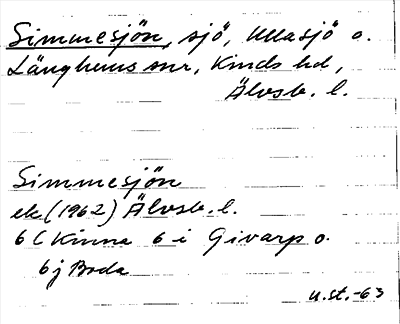 Simmesjön, sjö, Ullasjö o.
Länghems snr, Kinds hd,
Älvsb. l.
Simmesjön
ek (1962) Älvsb. l.
6 C Kinna 6 i Givarp o.
6 j Boda
u.st.-63